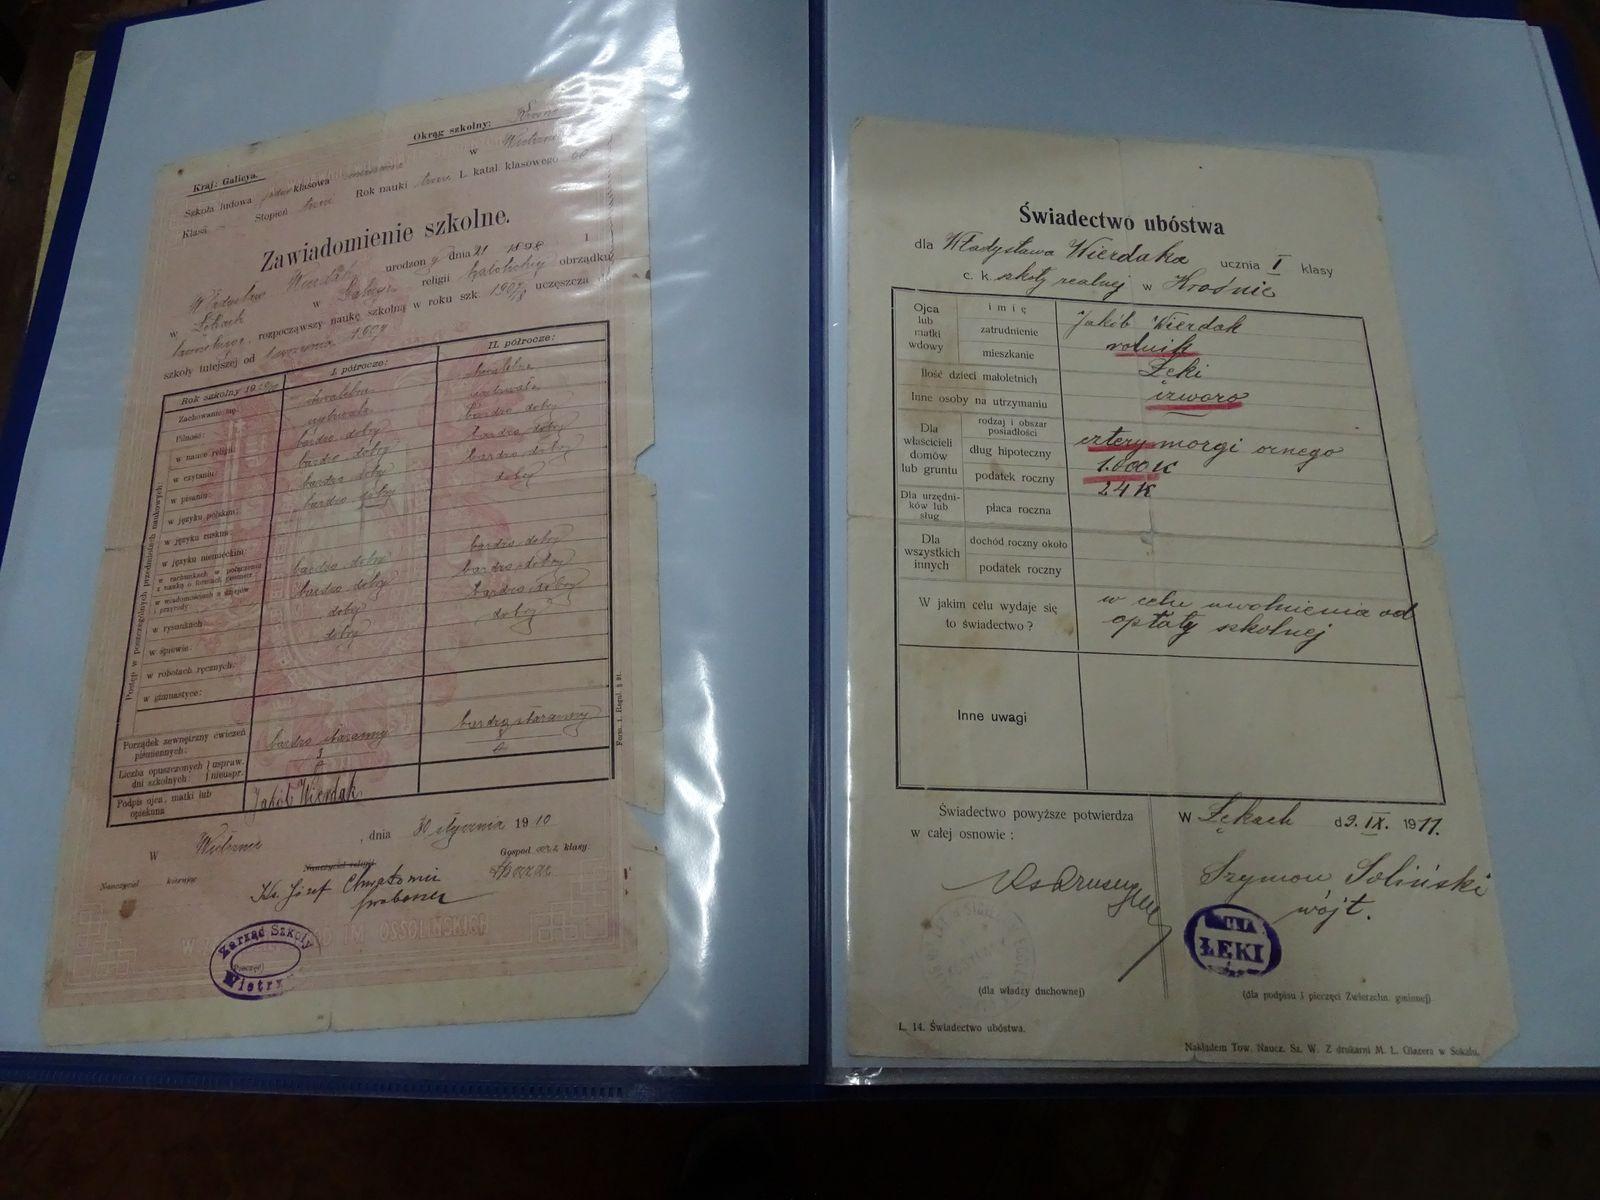 Kraj: Galicya.
Okrąg szkolny: Krosno
Szkoła ludowa klasowa w
Klasa Stopień Rok nauki L. katal. klasowego
Zawiadomienie szkolne.
Wierdak urodzon y dnia 21 1898
w religii obrządku
w Łękach, rozpocząwszy naukę szkolną w roku szk. 1907/8 uczęszcza
szkoły tutejszej od 1 września 1907
Rok szkolny 19 I. półrocze: II. półrocze:
Zachowanie się: chwalebne chwalebne
Pilność: wytrwała wytrwała
Postęp w poszczególnych przedmiotach naukowych:
w nauce religii: bardzo dobry bardzo dobry
w czytaniu: bardzo dobry bardzo dobry
w pisaniu: bardzo dobry bardzo dobry
w języku polskim: bardzo dobry dobry
w języku ruskim:
w języku niemieckim:
w rachunkach w połączeniu z nauką o formach geometr.: bardzo dobry bardzo dobry
w wiadomościach z dziejów i przyrody: bardzo dobry bardzo dobry
w rysunkach: dobry bardzo dobry
w śpiewie: dobry dobry
w robotach ręcznych:
w gimnastyce:
Porządek zewnętrzny ćwiczeń piśmiennych: bardzo staranny bardzo staranny
Liczba opuszczonych dni szkolnych: uspraw. nieuspr.
Podpis ojca, matki lub opiekuna Jakób Wierdak
Form. 1. Regul. § 91.
W , dnia 30 stycznia 1910
Nauczyciel kierując Nauczyciel religii Gospod arz klasy:
Ks. Józef
Zarząd Szkoły
(Pieczęć)
IM OSSOLIŃSKICH
Świadectwo ubóstwa
dla Władysława Wierdaka ucznia I klasy
c. k. szkoły realnej w Krośnie
Ojca lub matki wdowy
imię Jakób Wierdak
zatrudnienie rolnik
mieszkanie Łęki
Ilość dzieci małoletnich czworo
Inne osoby na utrzymaniu
Dla właścicieli domów lub gruntu
rodzaj i obszar posiadłości cztery morgi ornego
dług hipoteczny 1.000 K
podatek roczny 24 K
Dla urzędników lub sług
płaca roczna
Dla wszystkich innych
dochód roczny około
podatek roczny
W jakim celu wydaje się to świadectwo? w celu uwolnienia od
opłaty szkolnej
Inne uwagi
Świadectwo powyższe potwierdza
w całej osnowie:
W Łękach d 9. IX. 1911.
Szymon Soliński
wójt.
ŁĘKI
(dla władzy duchownej)
(dla podpisu i pieczęci Zwierzchn. gminnej)
L. 14. Świadectwo ubóstwa.
Nakładem Tow. Naucz. Sz. W. Z drukarni M. L. Glazera w Sokalu.